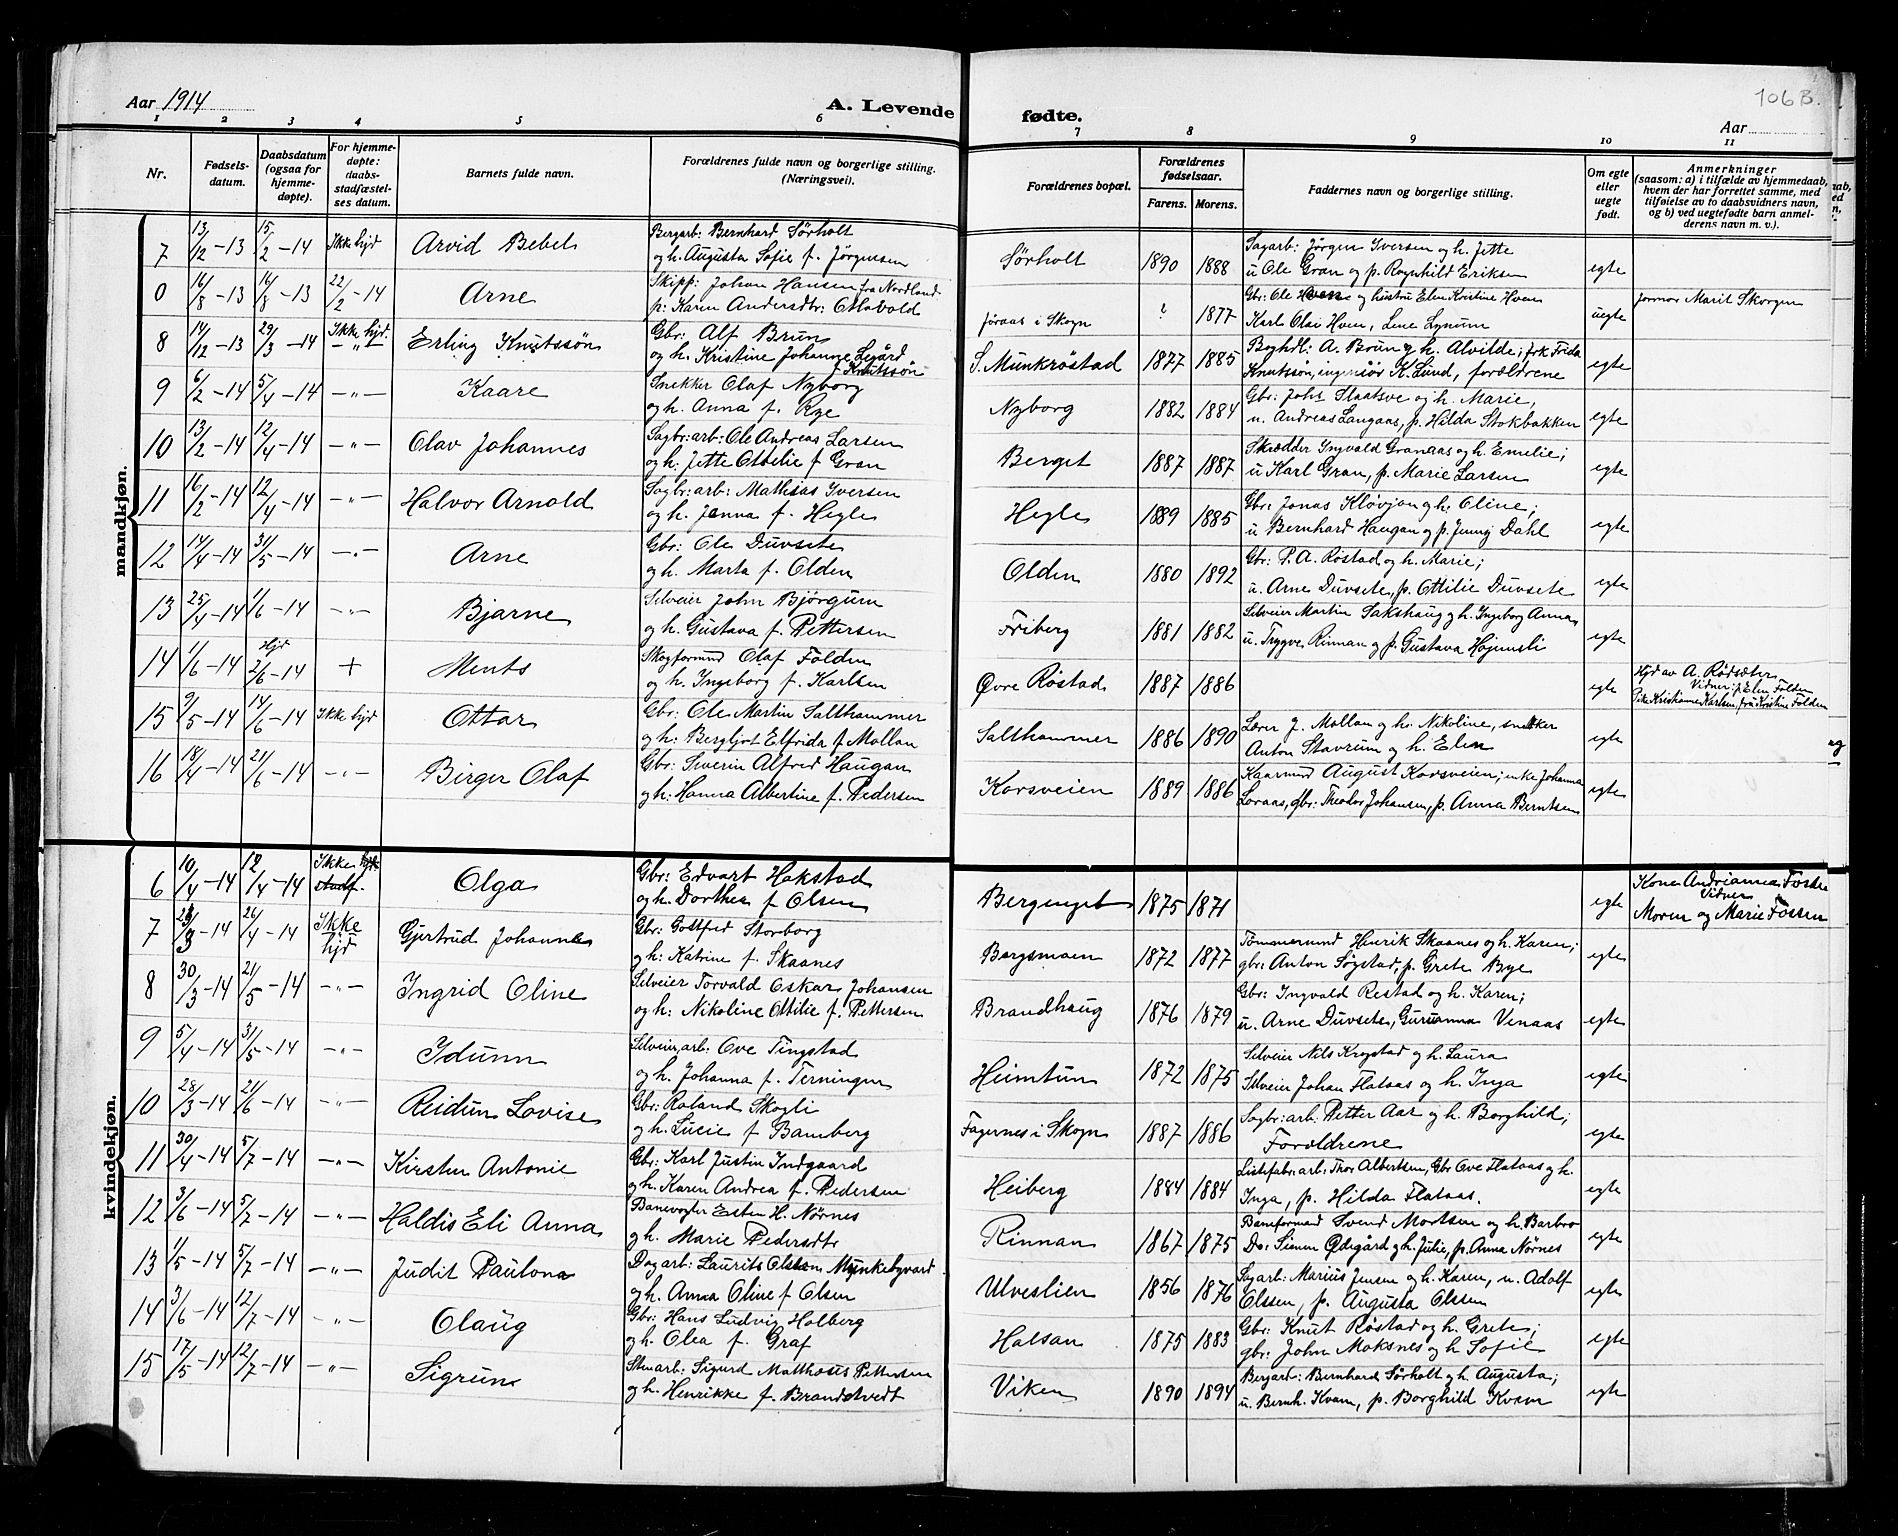 Aar 1914
A. Levende
fødte.
106 B.
Aar
1 2 3 4 5 6 7 8 9 10 11
Nr.
Fødsels-
datum.
Daabsdatum
(ogsaa for
hjemme-
døpte).
For hjemme-
døpte:
daabs-
stadfæstel-
ses datum.
Barnets fulde navn.
Forældrenes fulde navn og borgerlige stilling.
(Næringsvei).
Forældrenes bopæl.
Forældrenes
fødselsaar.
Farens. Morens.
Faddernes navn og borgerlige stilling.
Om egte
eller
uegte
født.
Anmerkninger
(saasom: a) i tilfælde av hjemmedaab,
hvem der har forrettet samme, med
tilføielse av to daabsvidners navn,
og b) ved uegtefødte barn anmel-
derens navn m. v.).
mandkjøn.
7 13/12 - 13 15/2 - 14 Ikke hjd Arvid Bebel Bergarb: Bernhard Sørholt
og h. Augusta Sofie f. Jörgensen
Sørholt 1890 1888 Sagarb: Jörgen Iversen og h. Jette
u Ole Gran og p. Ragnhild Eriksen egte
0 16/8 - 13 16/8 - 13 22/2 - 14 Arne Skipp: Johan Hansen fra Nordland
p: Karen Andersdtr: Ottobold
föraas i Skogn ? 1877 Gbr: Ole Hoven og hustru Elen Kristine Hven
Karl Olai Hven, Lene Lynum uegte Jormor Marit Skorgen
8 14/12 - 13 29/3 - 14 Ikke hjd. Erling Knutssön Gbr: Alf Brun
og h. Kristine Johanne Legård
f. Knutssön
S. Munkröstad 1877 1885 Boghdl: A. Brun og h. Alvilde; frk Frida
Knutssön, ingeniör K. Lund, forældrene egte
9 6/2 - 14 5/4 - 14 -"- Kaare Snekker Olaf Nyborg
og h. Anna f. Rye
Nyborg 1882 1884 Gbr: Johs Slaatsve og h. Marie,
u. Andreas Langaas, p. Hilda Stokbakken egte
10 13/2 - 14 12/4 - 14 -"- Olav Johannes Sagbr: arb: Ole Andreas Larsen
og h. Jette Ottelie f Gran
Berget 1887 1887 Skrædder Ingvald Granaas og h. Emelie;
u Karl Gran, p. Marie Larsen egte
11 16/2 - 14 12/4 - 14 -"- Halvor Arnold Sagbr: arb: Mathias Iversen
og h. Jenna f. Hegle
Hegle 1889 1885 Gbr: Jonas Klövjan og h. Oline;
u Bernhard Haugan og p. Jenny Dahl egte
12 14/4 - 14 31/5 - 14 -"- Arne Gbr: Ole Duvsete
og h. Marta f. Olden
Olden 1880 1892 Gbr: P. A. Röstad og h. Marie;
u. Arne Duvsete, p. Ottilie Duvsete egte
13 25/4 - 14 1/6 - 14 -"- Bjarne Selveier John Bjørgum
og h. Gustava f. Pettersen
Friberg 1881 1882 Selveier Martin Sakshaug og h. Ingeborg Anna
u. Trygve Rinnan og p. Gustava Högemsli egte
14 1/6 - 14 Hjd 2/6 - 14 + Ments Skogformd Olaf Folden
og h. Ingeborg f. Karlsen
Øvre Röstad 1887 1886 egte Hjd av A. Rödsæter
Vidner: p. Elen Folden
Pike Kristianne Karlsen, fru Kristine Folden
15 9/5 - 14 14/6 - 14 Ikke hjd Ottar Gbr: Ole Martin Salthammer
og h: Bergljot Elfrida f Mollan
Salthammer 1886 1890 Lærer J. Mollan og h. Nikoline, snekker
Anton Stavrum og h. Elen egte
16 18/4 - 14 21/6 - 14 -"- Birger Olaf Gbr: Severin Alfred Haugan
og h: Hanna Albertine f. Pedersen
Korsveien 1889 1886 Kaarmd August Korsveien; enke Johanna
Loraas, gbr: Theodor Johansen, p. Anna Berntsen egte
kvindekjøn.
6 10/4 - 14 12/4 - 14 Ikke hjd
stadf. Olga Gbr: Edvart Hakstad
og h. Dorthea f. Olsen
Bergenget 1875 1871 egte Kone Andrianna Fossen
Vidner
Moren og Marie Fossen
7 29/3 - 14 26/4 - 14 Ikke
hjd Gjertrud Johanne Gbr: Gottfred Storborg
og h: Katrine f. Skaanes
Borgsmoen 1872 1877 Tömmermd Henrik Skaanes og h. Karen;
gbr: Anton Søgstad, p. Grete Bye egte
8 30/3 - 14 21/5 - 14 -"- Ingrid Oline Selveier Torvald Oskar Johansen
og h: Nikoline Ottilie f. Pettersen
Brandhaug 1876 1879 Gbr: Ingvald Restad og h. Karen;
u. Arne Duvsete, Gurianna Venaas egte
9 5/4 - 14 31/5 - 14 -"- Idunn Selveier, arb: Ove Tingstad
og h. Johanna f. Terningen
Heimtun 1872 1875 Selveier Nils Krogstad og h. Laura
Selveier Johan Flataas og h. Inga egte
10 28/3 - 14 21/6 - 14 -"- Reidun Lovise Gbr: Roland Skogli
og h. Lucie f Bamberg
Fagernes i Skogn 1887 1886 Sagbr: arb. Petter Aar og h. Borghild;
Forældrene egte
11 30/4 - 14 5/7 - 14 -"- Kirsten Antonie Gbr: Karl Justin Indgaard
og h. Karen Andrea f. Pedersen
Heiberg 1884 1884 Listefabr: arb: Thor Albertsen, Gbr Ove Flataas og h.
Inga, p. Hilda Flataas. egte
12 3/6 - 14 5/7 - 14 -"- Haldis Eli Anna Banevogter Esten H. Nörnes
og h. Marie Pedersdtr
Rinnan 1867 1875 Baneformand Svend Mortsen og h. Barbro
Do: Simen Ødegård og h. Julie, p. Anna Nörnes egte
13 1/5 - 14 5/7 - 14 -"- Judit Paulona Dagarb: Laurits Olsson Munkebyvard
og h. Anna Oline f Olsen
Ulveslien 1856 1876 Sagarb: Marius Jensen og h. Karen, u. Adolf
Olssen, p. Augusta Olssen egte
14 3/6 - 14 12/7 - 14 -"- Olaug Gbr: Hans Ludvig Halberg
og h. Olea f. Graf
Halsan 1875 1883 Gbr: Knut Röstad og h. Grete;
gbr: John Moksnes og h Sofie egte
15 17/5 - 14 12/7 - 14 -"- Sigrun Stenarb: Sigurd Matthæus Pettersen
og h. Henrikke f. Brandstvedt
Viken 1890 1894 Bergarb: Bernhard Sörholt og h. Augusta;
u. Bernh. Kvam, p. Borghild Kvam egte